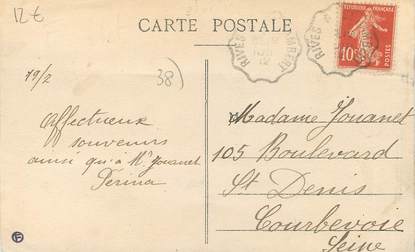 12€
CARTE POSTALE
RIVES
RIVES
10
19/2
38)
Affectueux
souvenirs
ainsi qu'à Mr Jouanet
Perina
Madame Jouanet
105 Boulevard
St Denis
Courbevoie
Seine